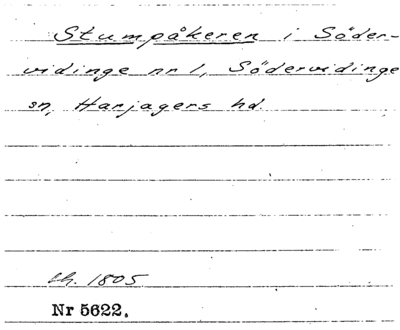 Stumpåkeren i Söder-
vidinge nr 1, Södervidinge
sn, Harjagers hd.
Lh. 1805
Nr 5622.